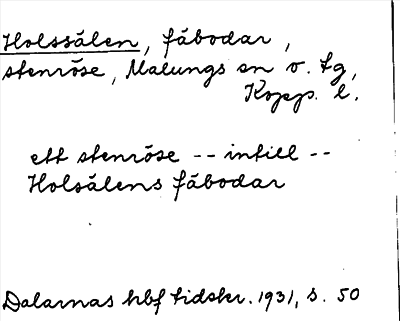 Holssälen, fäbodar,
stenröse, Malungs sn o. tg,
Kopp. l.
ett stenröse -- intill --
Holsälens fäbodar
Dalarnas hbf tidskr. 1931, s. 50